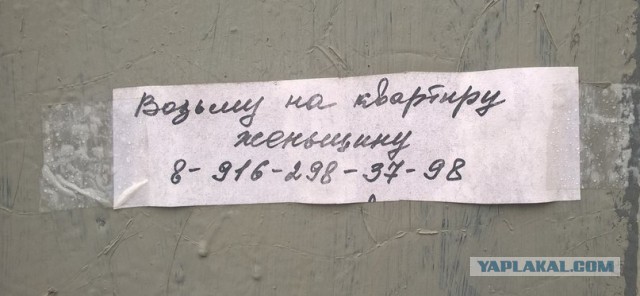 Возьму на квартиру
женьщину
8-916-298-37-98
YAPLAKAL.COM